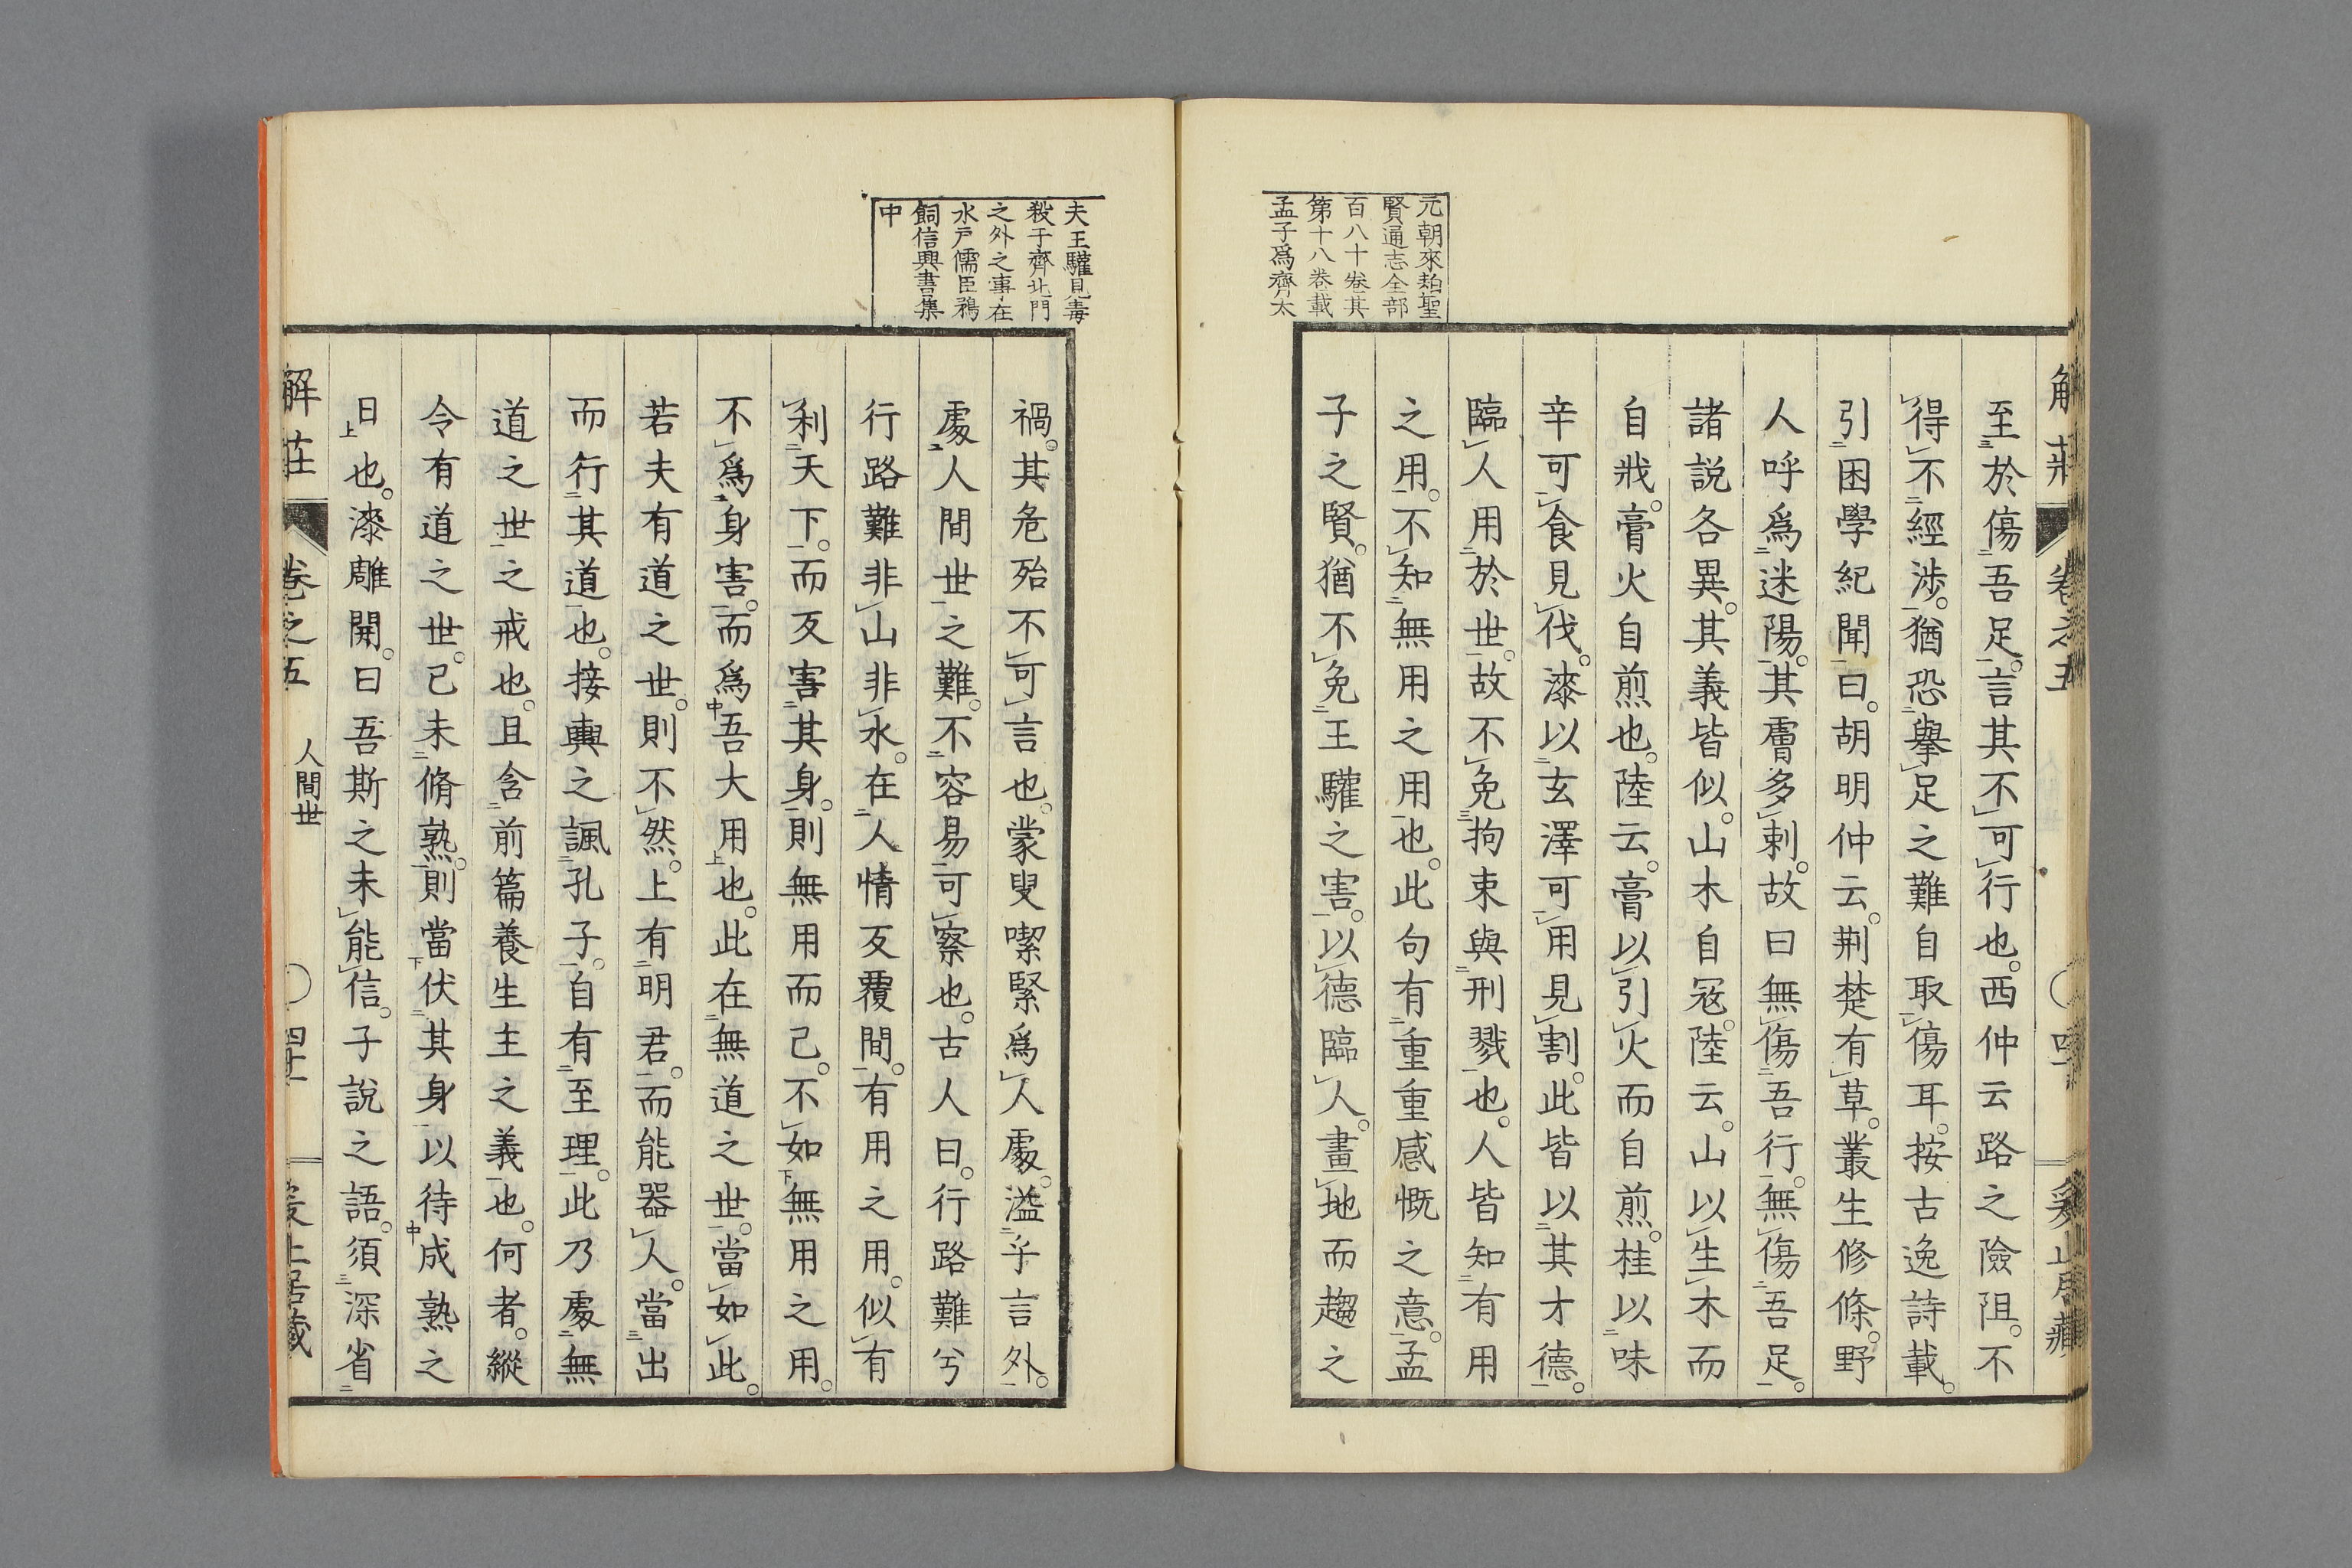 元朝來麹聖
賢通志全部
百八十卷其
第十八卷載
孟子爲齊大
至於傷吾足。言其不可行也。西仲云路之險阻。不
得不經涉。猶恐擧足之難自取傷耳。按古逸詩載。
引困學紀聞曰。胡明仲云。荆楚有草。叢生修條。野
人呼爲迷陽。其膚多刺。故曰無傷吾行。無傷吾足。
諸說各異。其義皆似。山木自冦。陸云。山以生木而
自戕。膏火自煎也。陸云。膏以引火而自煎。桂以味
辛可食見伐。漆以玄澤可用見割。此皆以其才德。
臨人用於世。故不免拘束與刑戮也。人皆知有用
之用。不知無用之用也。此句有重重感慨之意。孟
子之賢。猶不免王驩之害。以德臨人。畫地而趨之
夫王驩見毒
殺于齊北門
之外之事在
水戸儒臣鵜
飼信興書集
中
禍。其危殆不可言也。蒙叟喫緊爲人處。溢乎言外。
處人間世之難。不容易可察也。古人曰。行路難兮
行路難非山非水。在人情反覆間。有用之用。似有
利天下。而反害其身。則無用而已。不如無用之用。
不爲身害。而爲吾大用也。此在無道之世。當如此。
若夫有道之世。則不然。上有明君。而能器人。當出
而行其道也。接輿之諷孔子。自有至理。此乃處無
道之世之戒也。且含前篇養生主之義也。何者。縱
令有道之世。已未脩熟。則當伏其身以待成熟之
日也。漆雕開。曰吾斯之未能信。子說之語。須深省
解莊 卷之五 人間世 四十一